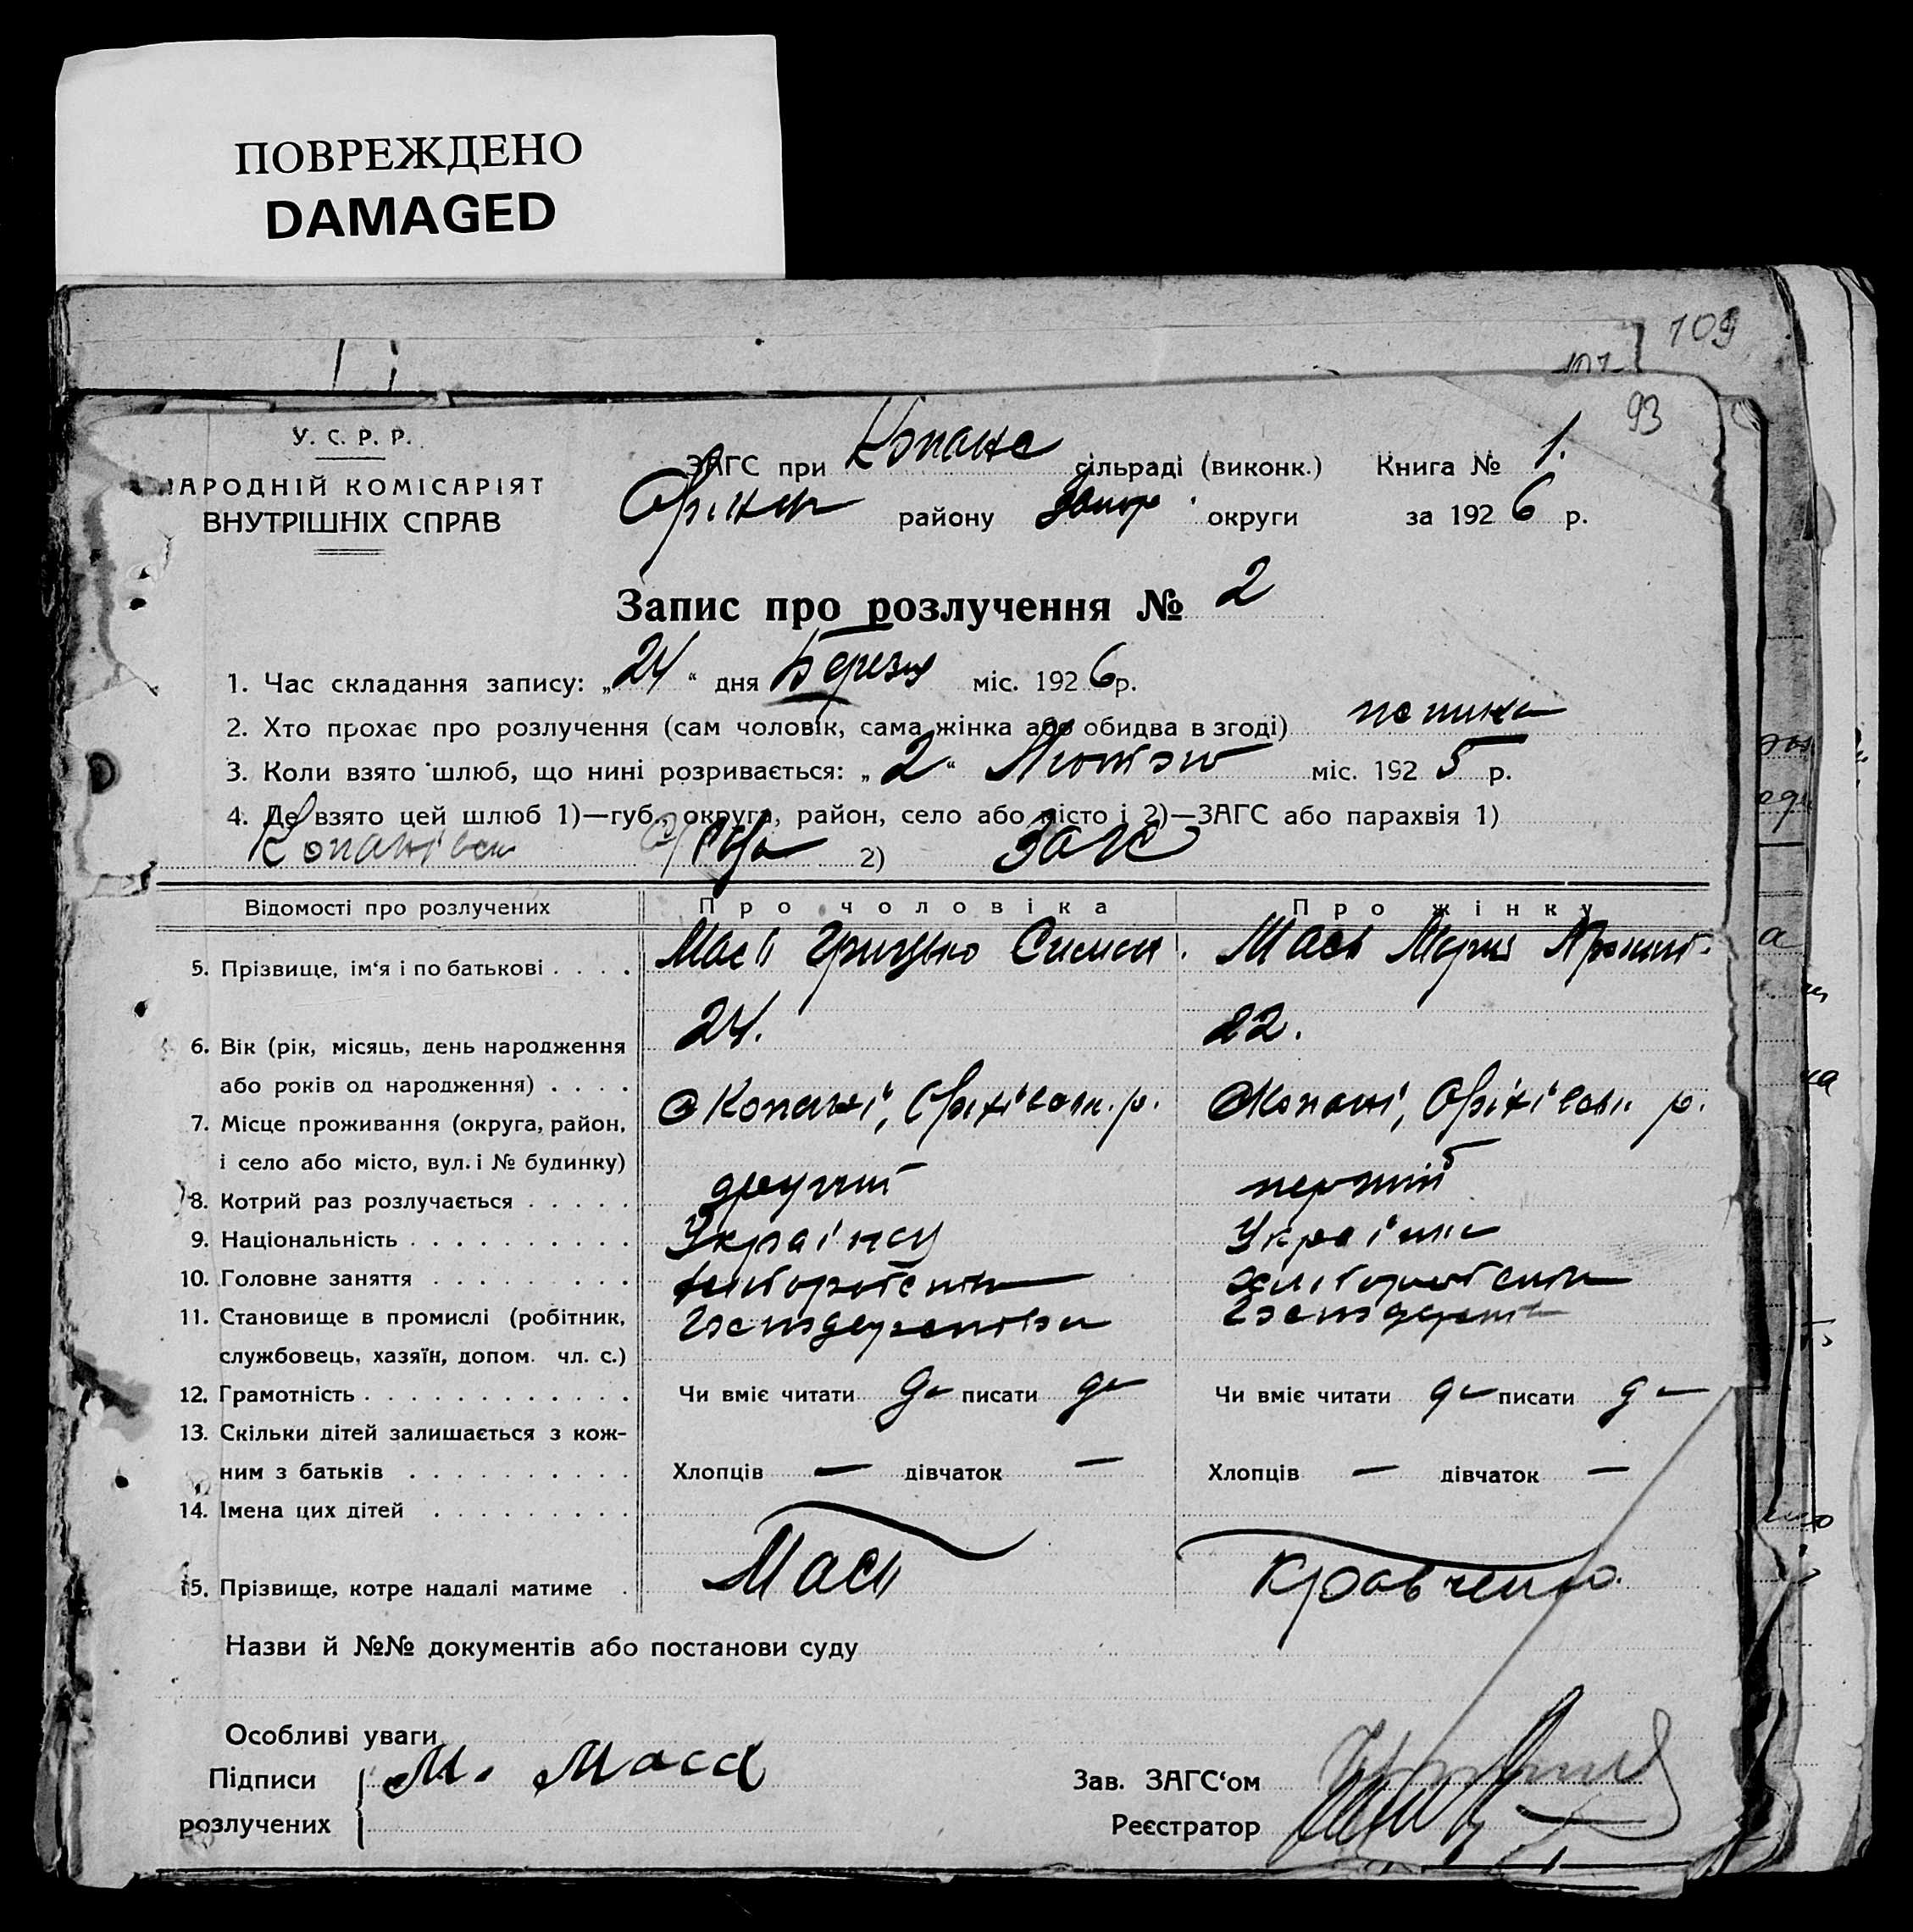 ПОВРЕЖДЕНО
DAMAGED
109
93
У. С. Р. Р.
НАРОДНІЙ КОМІСАРІЯТ
ВНУТРІШНІХ СПРАВ
ЗАГС при Копане сільраді (виконк.) Книга № 1.
району Запор округи за 1926 р.
Запис про розлучення № 2
1. Час складання запису: „24“ дня Березня міс. 1926р.
2. Хто прохає про розлучення (сам чоловік, сама жінка або обидва в згоді)
3. Коли взято шлюб, що нині розривається: „2“ Лютого міс. 1925 р.
4. Де взято цей шлюб 1)—губ., округа, район, село або місто і 2)—ЗАГС або парахвія 1)
2) Загс
Відомості про розлучених Про чоловіка Про жінку
5. Прізвище, ім'я і по батькові . . . . Мась Грицько Симон. Мась Мария
6. Вік (рік, місяць, день народження 24. 22.
або років од народження) . . . .
7. Місце проживання (округа, район, с Копані, Оріхівськ. р. с Копані, Оріхівськ р.
і село або місто, вул. і № будинку)
8. Котрий раз розлучається . . . . . другий перший
9. Національність . . . . . . . . . . Українец Українка
10. Головне заняття . . . . . . . . . хліборобство хліборобство
11. Становище в промислі (робітник,
службовець, хазяїн, допом. чл. с.)
12. Грамотність . . . . . . . . . . . . Чи вміє читати да писати да Чи вміє читати да писати да
13. Скільки дітей залишається з кож-
ним з батьків . . . . . . . . . . Хлопців — дівчаток — Хлопців — дівчаток —
14. Імена цих дітей . . . . . . . . .
15. Прізвище, котре надалі матиме . Мась Кравченко.
Назви й №№ документів або постанови суду
Особливі уваги
Підписи М. Маса Зав. ЗАГС'ом
розлучених Реєстратор